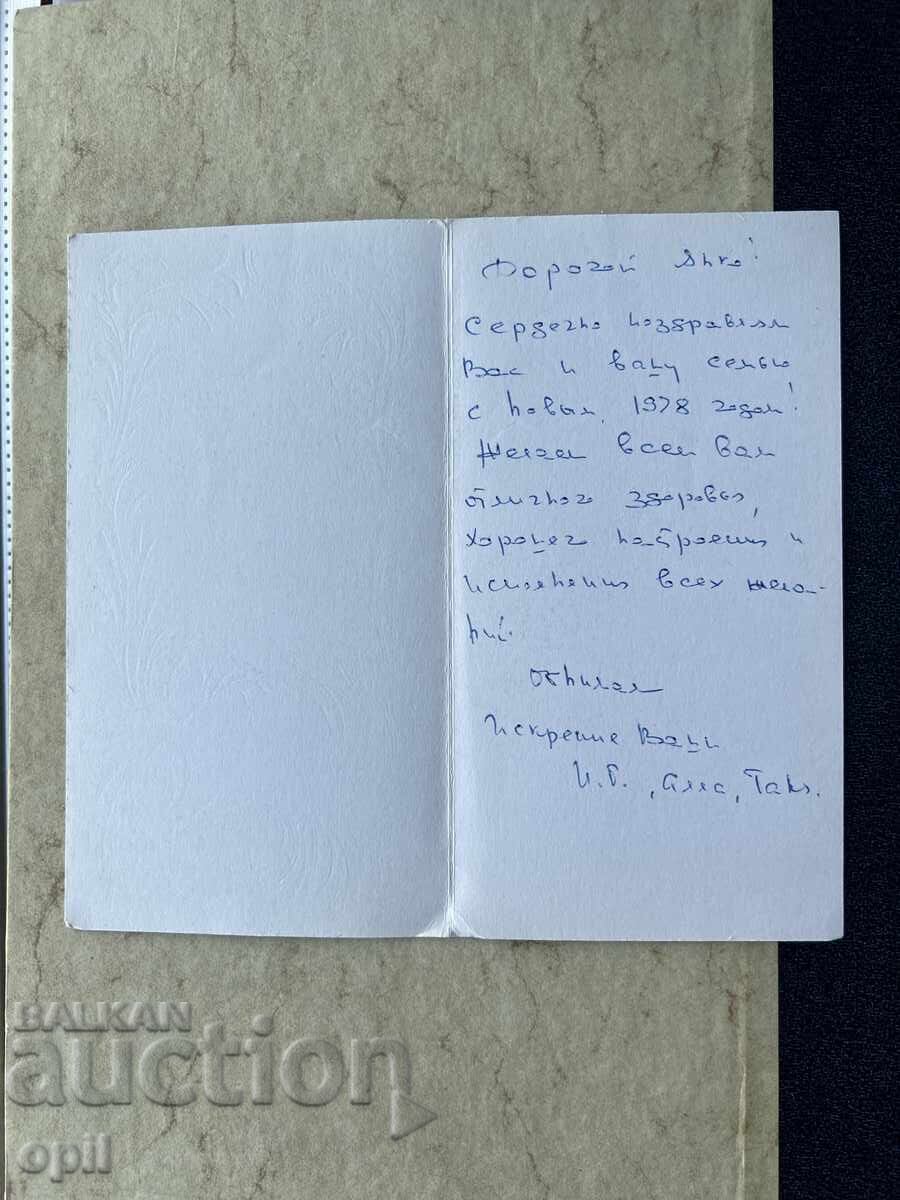 Дорогой Янко!
Сердечно поздравляем
Вас и вашу семью
с новым 1978 годом!
Желаем всем вам
отличного здоровья,
хорошего настроения и
исполнения всех жела-
ний.
Обнимаем
Искренне Ваши
И.Б., Алла, Таня.
BALKAN
auction
opil